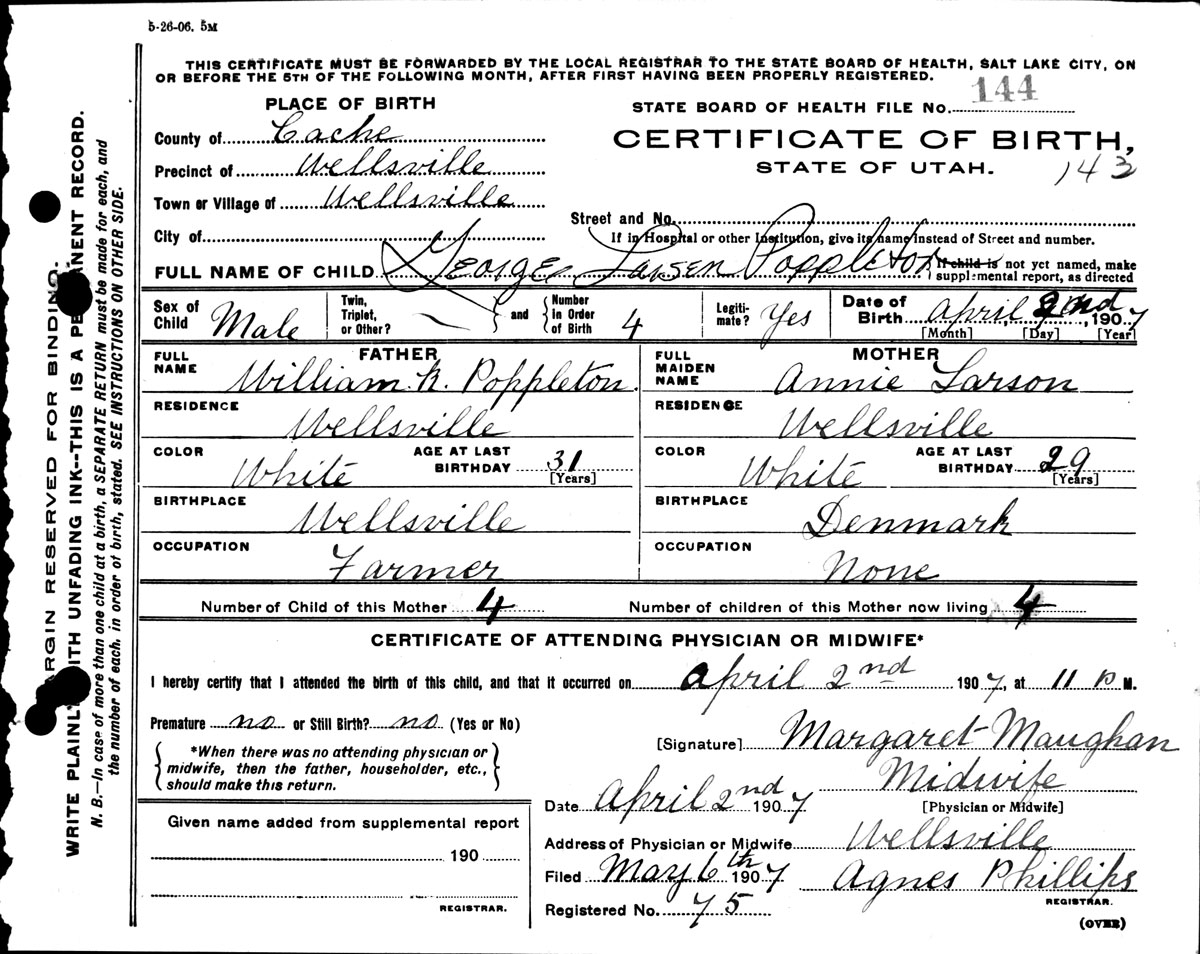 5-26-06. 5M
THIS CERTIFICATE MUST BE FORWARDED BY THE LOCAL REGISTRAR TO THE STATE BOARD OF HEALTH, SALT LAKE CITY, ON
OR BEFORE THE 5TH OF THE FOLLOWING MONTH, AFTER FIRST HAVING BEEN PROPERLY REGISTERED.
PLACE OF BIRTH
County of Cache
Precinct of Wellsville
Town or Village of Wellsville
City of
STATE BOARD OF HEALTH FILE No. 144
CERTIFICATE OF BIRTH,
STATE OF UTAH.
143
Street and No.
If in Hospital or other Institution, give its name instead of Street and number.
FULL NAME OF CHILD George Larsen Poppleton
If child is not yet named, make
supplemental report, as directed
Sex of Child Male
Twin, Triplet, or Other?
and
Number in Order of Birth 4
Legiti-mate? Yes
Date of Birth April 2nd, 1907
[Month] [Day] [Year]
FATHER
FULL NAME William R. Poppleton.
RESIDENCE Wellsville
COLOR White
AGE AT LAST BIRTHDAY 31 [Years]
BIRTHPLACE Wellsville
OCCUPATION Farmer
MOTHER
FULL MAIDEN NAME Annie Larson
RESIDENCE Wellsville
COLOR White
AGE AT LAST BIRTHDAY 29 [Years]
BIRTHPLACE Denmark
OCCUPATION None
Number of Child of this Mother 4 Number of children of this Mother now living 4
CERTIFICATE OF ATTENDING PHYSICIAN OR MIDWIFE*
I hereby certify that I attended the birth of this child, and that it occurred on April 2nd 1907, at 11 P M.
Premature no or Still Birth? no (Yes or No)
*When there was no attending physician or
midwife, then the father, householder, etc.,
should make this return.
[Signature] Margaret Maughan
Midwife
Date April 2nd 1907 [Physician or Midwife]
Address of Physician or Midwife Wellsville
Filed May 6th 1907 Agnes Phillips
REGISTRAR.
Registered No. 75
(OVER)
Given name added from supplemental report
190
REGISTRAR.
MARGIN RESERVED FOR BINDING.
WRITE PLAINLY WITH UNFADING INK--THIS IS A PERMANENT RECORD.
N. B.—In case of more than one child at a birth, a SEPARATE RETURN must be made for each, and
the number of each, in order of birth, stated. SEE INSTRUCTIONS ON OTHER SIDE.